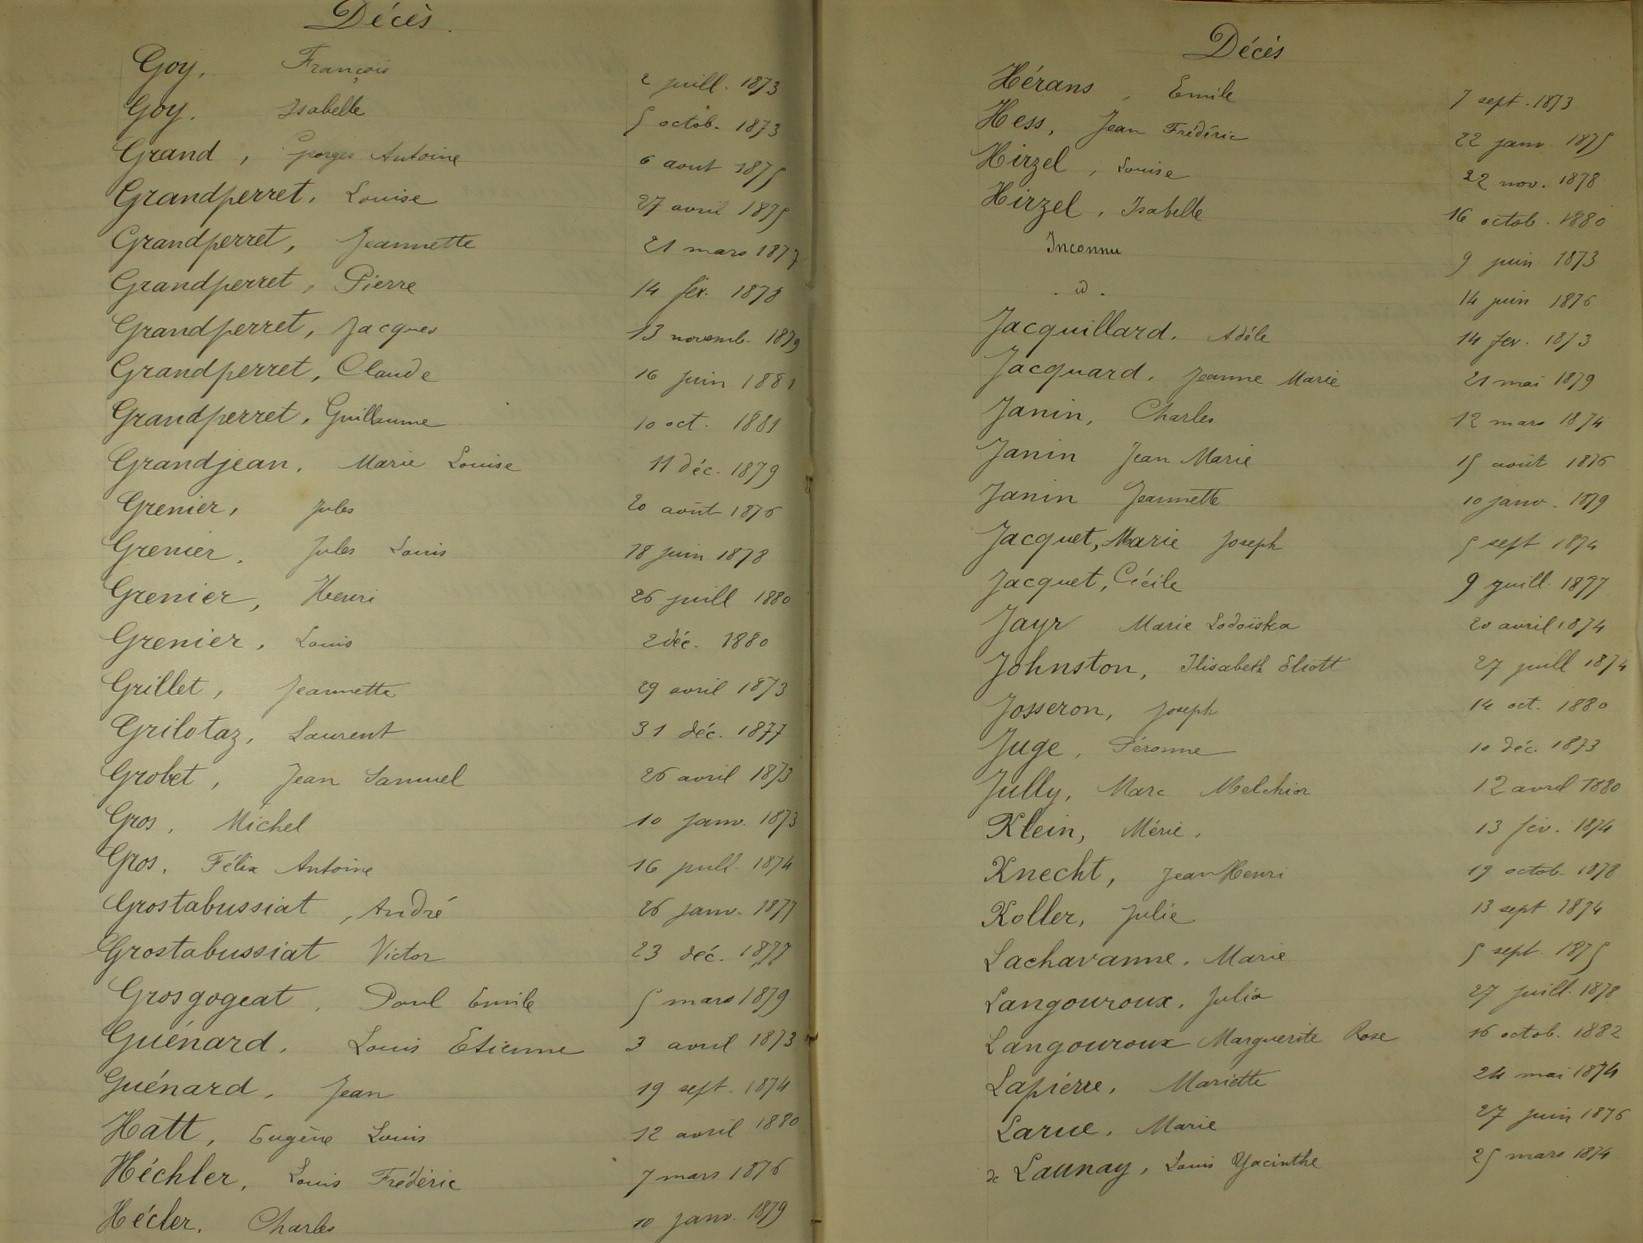 Décès.
Goy, François 2 juill. 1873
Goy. Isabelle 5 octob. 1873
Grand, Georges Antoine 6 aout 1875
Grandperret, Louise 27 avril 1875
Grandperret, Jeannette 21 mars 1877
Grandperret, Pierre 14 fév. 1878
Grandperret, Jacques 13 novemb. 1879
Grandperret, Claude 16 juin 1881
Grandperret, Guillaume 10 oct. 1881
Grandjean, Marie Louise 11 déc. 1879
Grenier, Jules 20 août 1876
Grenier, Jules Louis 18 juin 1878
Grenier, Henri 26 juill 1880
Grenier, Louis 2 déc. 1880
Grillet, Jeannette 29 avril 1873
Grilotaz, Laurent 31 déc. 1877
Grobet, Jean Samuel 26 avril 1873
Gros, Michel 10 janv. 1873
Gros, Félix Antoine 16 juill. 1874
Grostabussiat, André 26 janv. 1877
Grostabussiat Victor 23 déc. 1877
Grosgogeat, Paul Emile 5 mars 1879
Guénard, Louis Etienne 3 avril 1873
Guénard, Jean 19 sept. 1874
Hatt, Eugène Louis 12 avril 1880
Héchler, Louis Frédéric 7 mars 1876
Hécler, Charles 10 janv. 1879
Décès
Hérans, Emile 7 sept. 1873
Hess, Jean Frédéric 22 janv 1875
Hirzel, Louise 22 nov. 1878
Hirzel, Isabelle 16 octob. 1880
Inconnu 9 juin 1873
- id - 14 juin 1876
Jacquillard, Adèle 14 fev. 1873
Jacquard, Jeanne Marie 21 mai 1879
Janin, Charles 12 mars 1874
Janin Jean Marie 15 août 1876
Janin Jeannette 10 janv. 1879
Jacquet, Marie Joseph 5 sept 1874
Jacquet, Cécile 9 juill 1877
Jayr Marie Lodoïska 20 avril 1874
Johnston, Elisabeth Eliott 27 juill 1874
Josseron, Joseph 14 oct. 1880
Juge, Péronne 10 déc. 1873
Jully, Marc Melchior 12 avril 1880
Klein, Mérie. 13 fév. 1874
Knecht, Jean Henri 19 octob. 1878
Koller, Julie 13 sept 1874
Lachavanne, Marie 5 sept 1875
Langouroux, Julia 27 juill. 1878
Langouroux Marguerite Rose 16 octob. 1882
Lapierre, Mariette 24 mai 1874
Larue, Marie 27 juin 1876
de Launay, Louis Hyacinthe 25 mars 1874